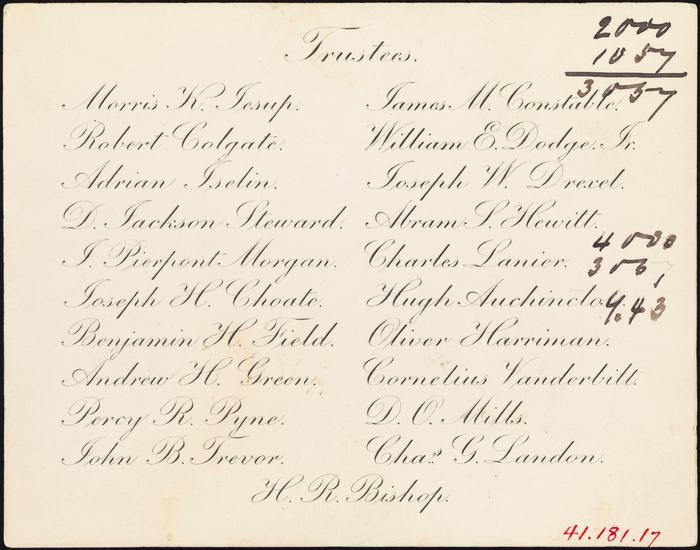 Trustees.
2000
1057
3057
Morris K. Jesup.
James M. Constable.
Robert Colgate.
William E. Dodge. Jr.
Adrian Iselin.
Joseph W. Drexel.
D. Jackson Steward.
Abram S. Hewitt.
J. Pierpont Morgan.
Charles Lanier.
4000
Joseph H. Choate.
943
Benjamin H. Field.
Oliver Harriman.
Andrew H. Green.
Cornelius Vanderbilt.
Percy R. Pyne.
D. O. Mills.
John B. Trevor.
Chas. G. Landon.
H. R. Bishop.
41.181.17